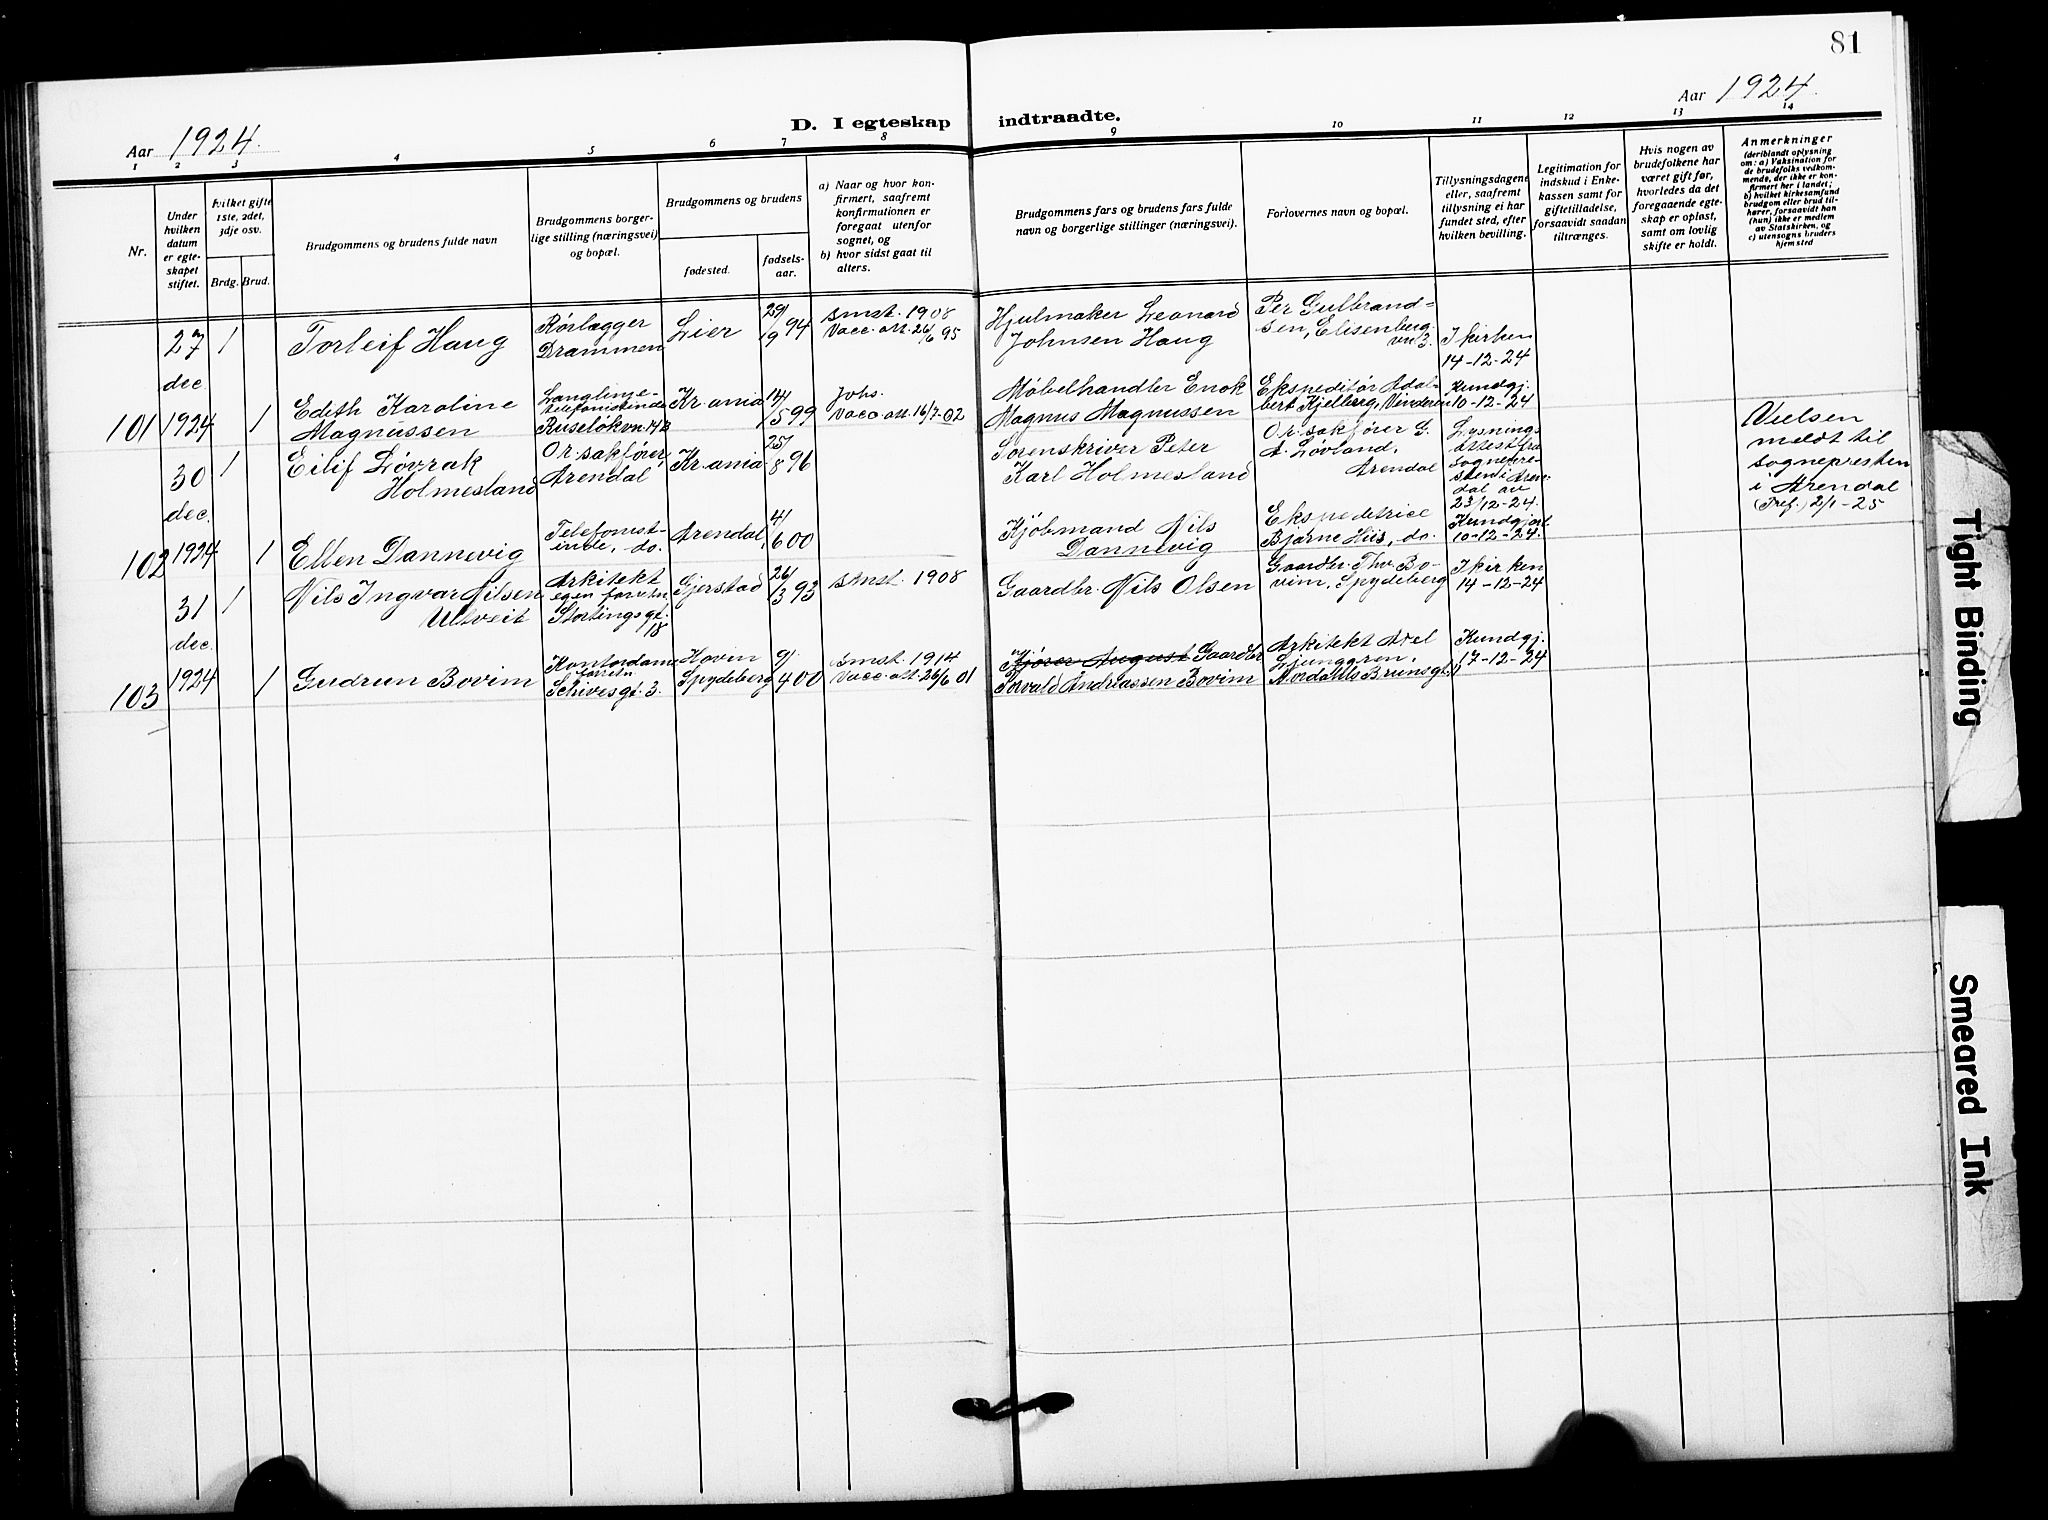 81
Aar 1924.
Aar 1924.
D. I egteskap indtraadte.
1 2 3 4 5 6 7 8 9 10 11 12 13 14
Nr.
Under hvilken datum er egteskapet stiftet.
Hvilket gifte 1ste, 2det, 3dje osv.
Brdg. Brud.
Brudgommens og brudens fulde navn
Brudgommens borgerlige stilling (næringsvei) og bopæl.
Brudgommens og brudens
fødested.
fødselsaar.
a) Naar og hvor konfirmert, saafremt konfirmationen er foregaat utenfor sognet, og
b) hvor sidst gaat til alters.
Brudgommens fars og brudens fars fulde navn og borgerlige stillinger (næringsvei).
Forlovernes navn og bopæl.
Tillysningsdagene eller, saafremt tillysning ei har fundet sted, efter hvilken bevilling.
Legitimation for indskud i Enkekassen samt for giftetilladelse, forsaavidt saadan tiltrænges.
Hvis nogen av brudefolkene har været gift før, hvorledes da det foregaaende egteskap er opløst, samt om lovlig skifte er holdt.
Anmerkninger
(deriblandt oplysning om: a) Vaksination for de brudefolks vedkommende, der ikke er konfirmert her i landet; b) hvilket kirkesamfund brudgom eller brud tilhører, forsaavidt han (hun) ikke er medlem av Statskirken, og c) utensogns bruders hjemsted
101
27 dec. 1924
1
Torleif Haug
Rørlægger
Drammen
Lier
29/9 94
Smst. 1908
Vacc. att. 26/6 95
Hjulmaker Leonard
Johnsen Haug
Per Gulbrand-
sen, Elisenberg-
vn 3.
I kirken
14-12-24
1
Edith Karoline
Magnussen
Langlinje-
telefonistinde
Ruseløkvn. 14B
Kr.ania
14/5 99
Johs.
Vacc. att. 16/7-02
Møbelhandler Enok
Magnus Magnussen
Ekspeditør Adal-
bert Kjelberg, Vinderen
Kundgj.
10-12-24
102
30 dec. 1924
1
Eilif Løvrak
Holmesland
O.r. sakfører,
Arendal
Kr.ania
25/8 96
Sorenskriver Peter
Karl Holmesland
O.r. sakfører G.
A. Løvland,
Arendal
Lysnings-
attest fra
sognepre-
sten i Aren-
dal av
23/12-24.
Vielsen
meldt til
sognepresten
i Arendal
(Pref.) 2/1-25
1
Ellen Dannevig
Telefonist-
inde, do.
Arendal
4/6 00
Kjøbmand Nils
Dannevig
Ekspeditrice
Bjarne Hiis, do.
Kundgjort
10-12-24.
103
31 dec. 1924
1
Nils Ingvar Nilsen
Ulveit
Arkitekt
egen forretn.
Stortingsgt.
18
Gjerstad
26/3 93
Smst. 1908
Gaardbr. Nils Olsen
Gaardbr. Thv. Bo-
vim, Spydeberg
I kirken
14-12-24
1
Gudrun Bovim
Kontordame
forretn.
Schivesgt. 3.
Hovin
Spydeberg
9/4 00
Smst. 1914
Vacc. att. 26/6 01
Kjører August Gaardbr.
Torvald Andreassen Bovim
Arkitekt Axel
Ljunggren,
Nordahls Brunsgt.
Kundgj.
17-12-24
Tight Binding
Smeared Ink